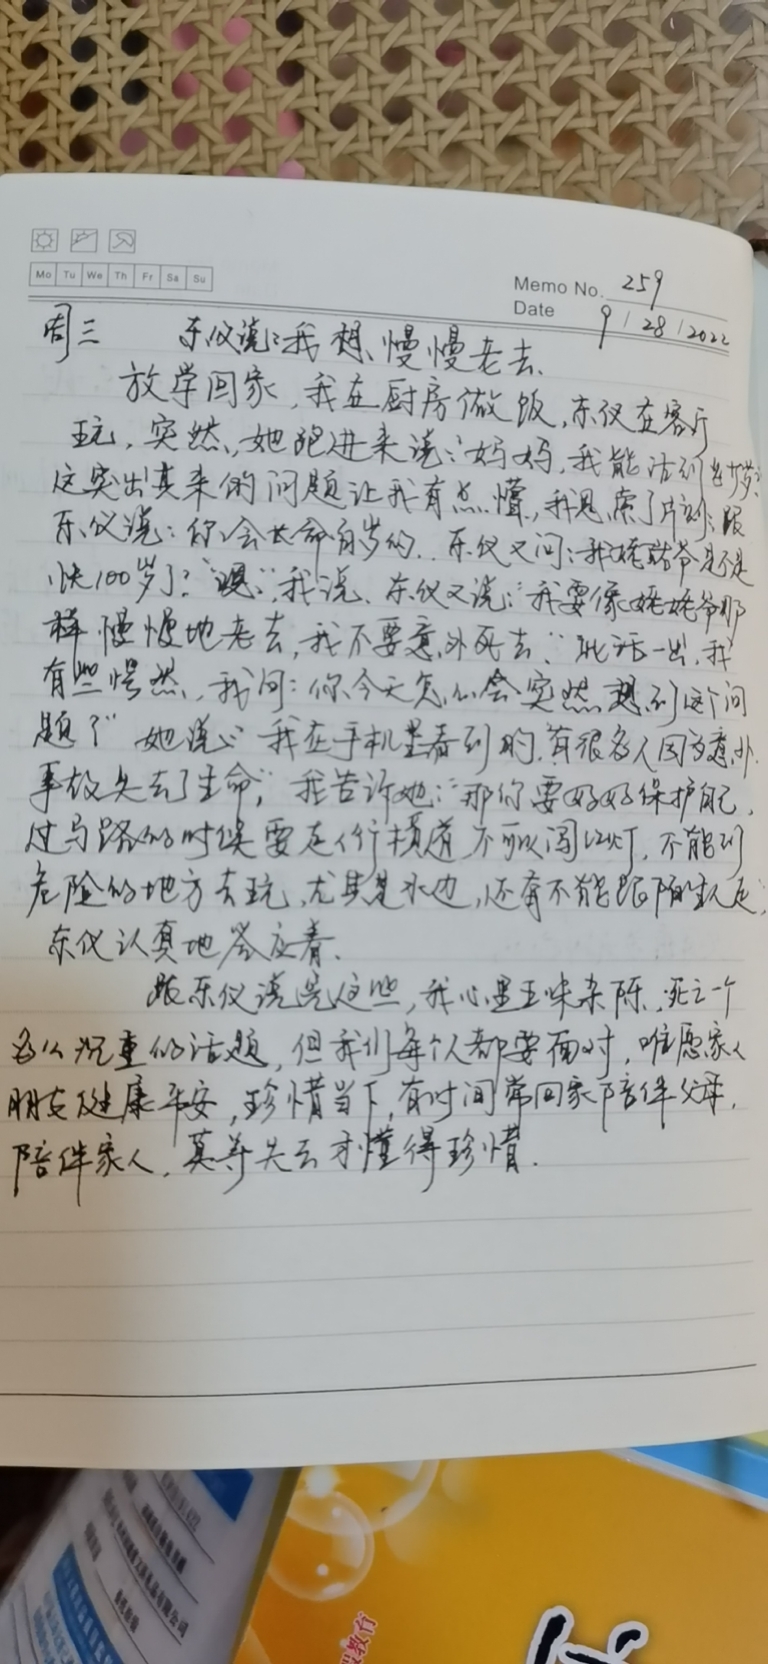 Mo Tu We Th Fr Sa Su
Memo No. 259
Date 9/28/2022
周三 东仪说:我想慢慢老去.
放学回家,我在厨房做饭,东仪在客厅
玩,突然,她跑进来说:"妈妈,我能活到
这突出其来的问题让我有点懵,我思索了片刻,跟
东仪说:你会长命百岁的. 东仪又问:我姥姥爷是不是
快100岁了?"嗯",我说. 东仪又说:"我要像姥姥爷那
样慢慢地老去,我不要意外死去."此话一出,我
有些愕然,我问:你今天怎么会突然想到这个问
题了"她说:"我在手机里看到的,有很多人因为意外
事故失去了生命",我告诉她:"那你要好好保护自己,
过马路的时候要走人行横道不可以闯红灯,不能到
危险的地方去玩,尤其是水边,还有不能跟陌生人走,"
东仪认真地答应着.
跟东仪说完这些,我心里五味杂陈,死亡一个
多么沉重的话题,但我们每个人都要面对,唯愿家人
朋友健康平安,珍惜当下,有时间常回家陪伴父母,
陪伴家人,莫等失去才懂得珍惜.
教育